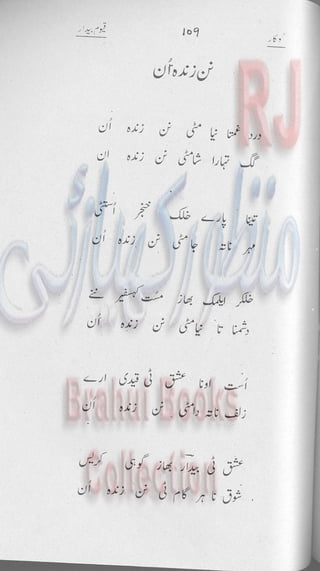 قیوم بیدار ۱۰۹
نن زندہ اُن
درد غمتا نیا مٹی نن زندہ اُن
گ تہارا شامٹی نن زندہ اں
تینا پارے خلک خنجر اُستٹی
مہر ناتہ جامٹی نن زندہ اُن
خلکر ایلمک بھاز مست کہسفیر ننے
دشمنا تا نیامٹی نن زندہ اُن
اُست اونا عشق ٹی قیدی ارے
زلف ناتہ دامٹی نن زندہ اُن
عشق ٹی بیدار بھاز گوہی کریس
شوق نا ہر گام ٹی نن زندہ اُن
RJ
Brahui Books
Collection